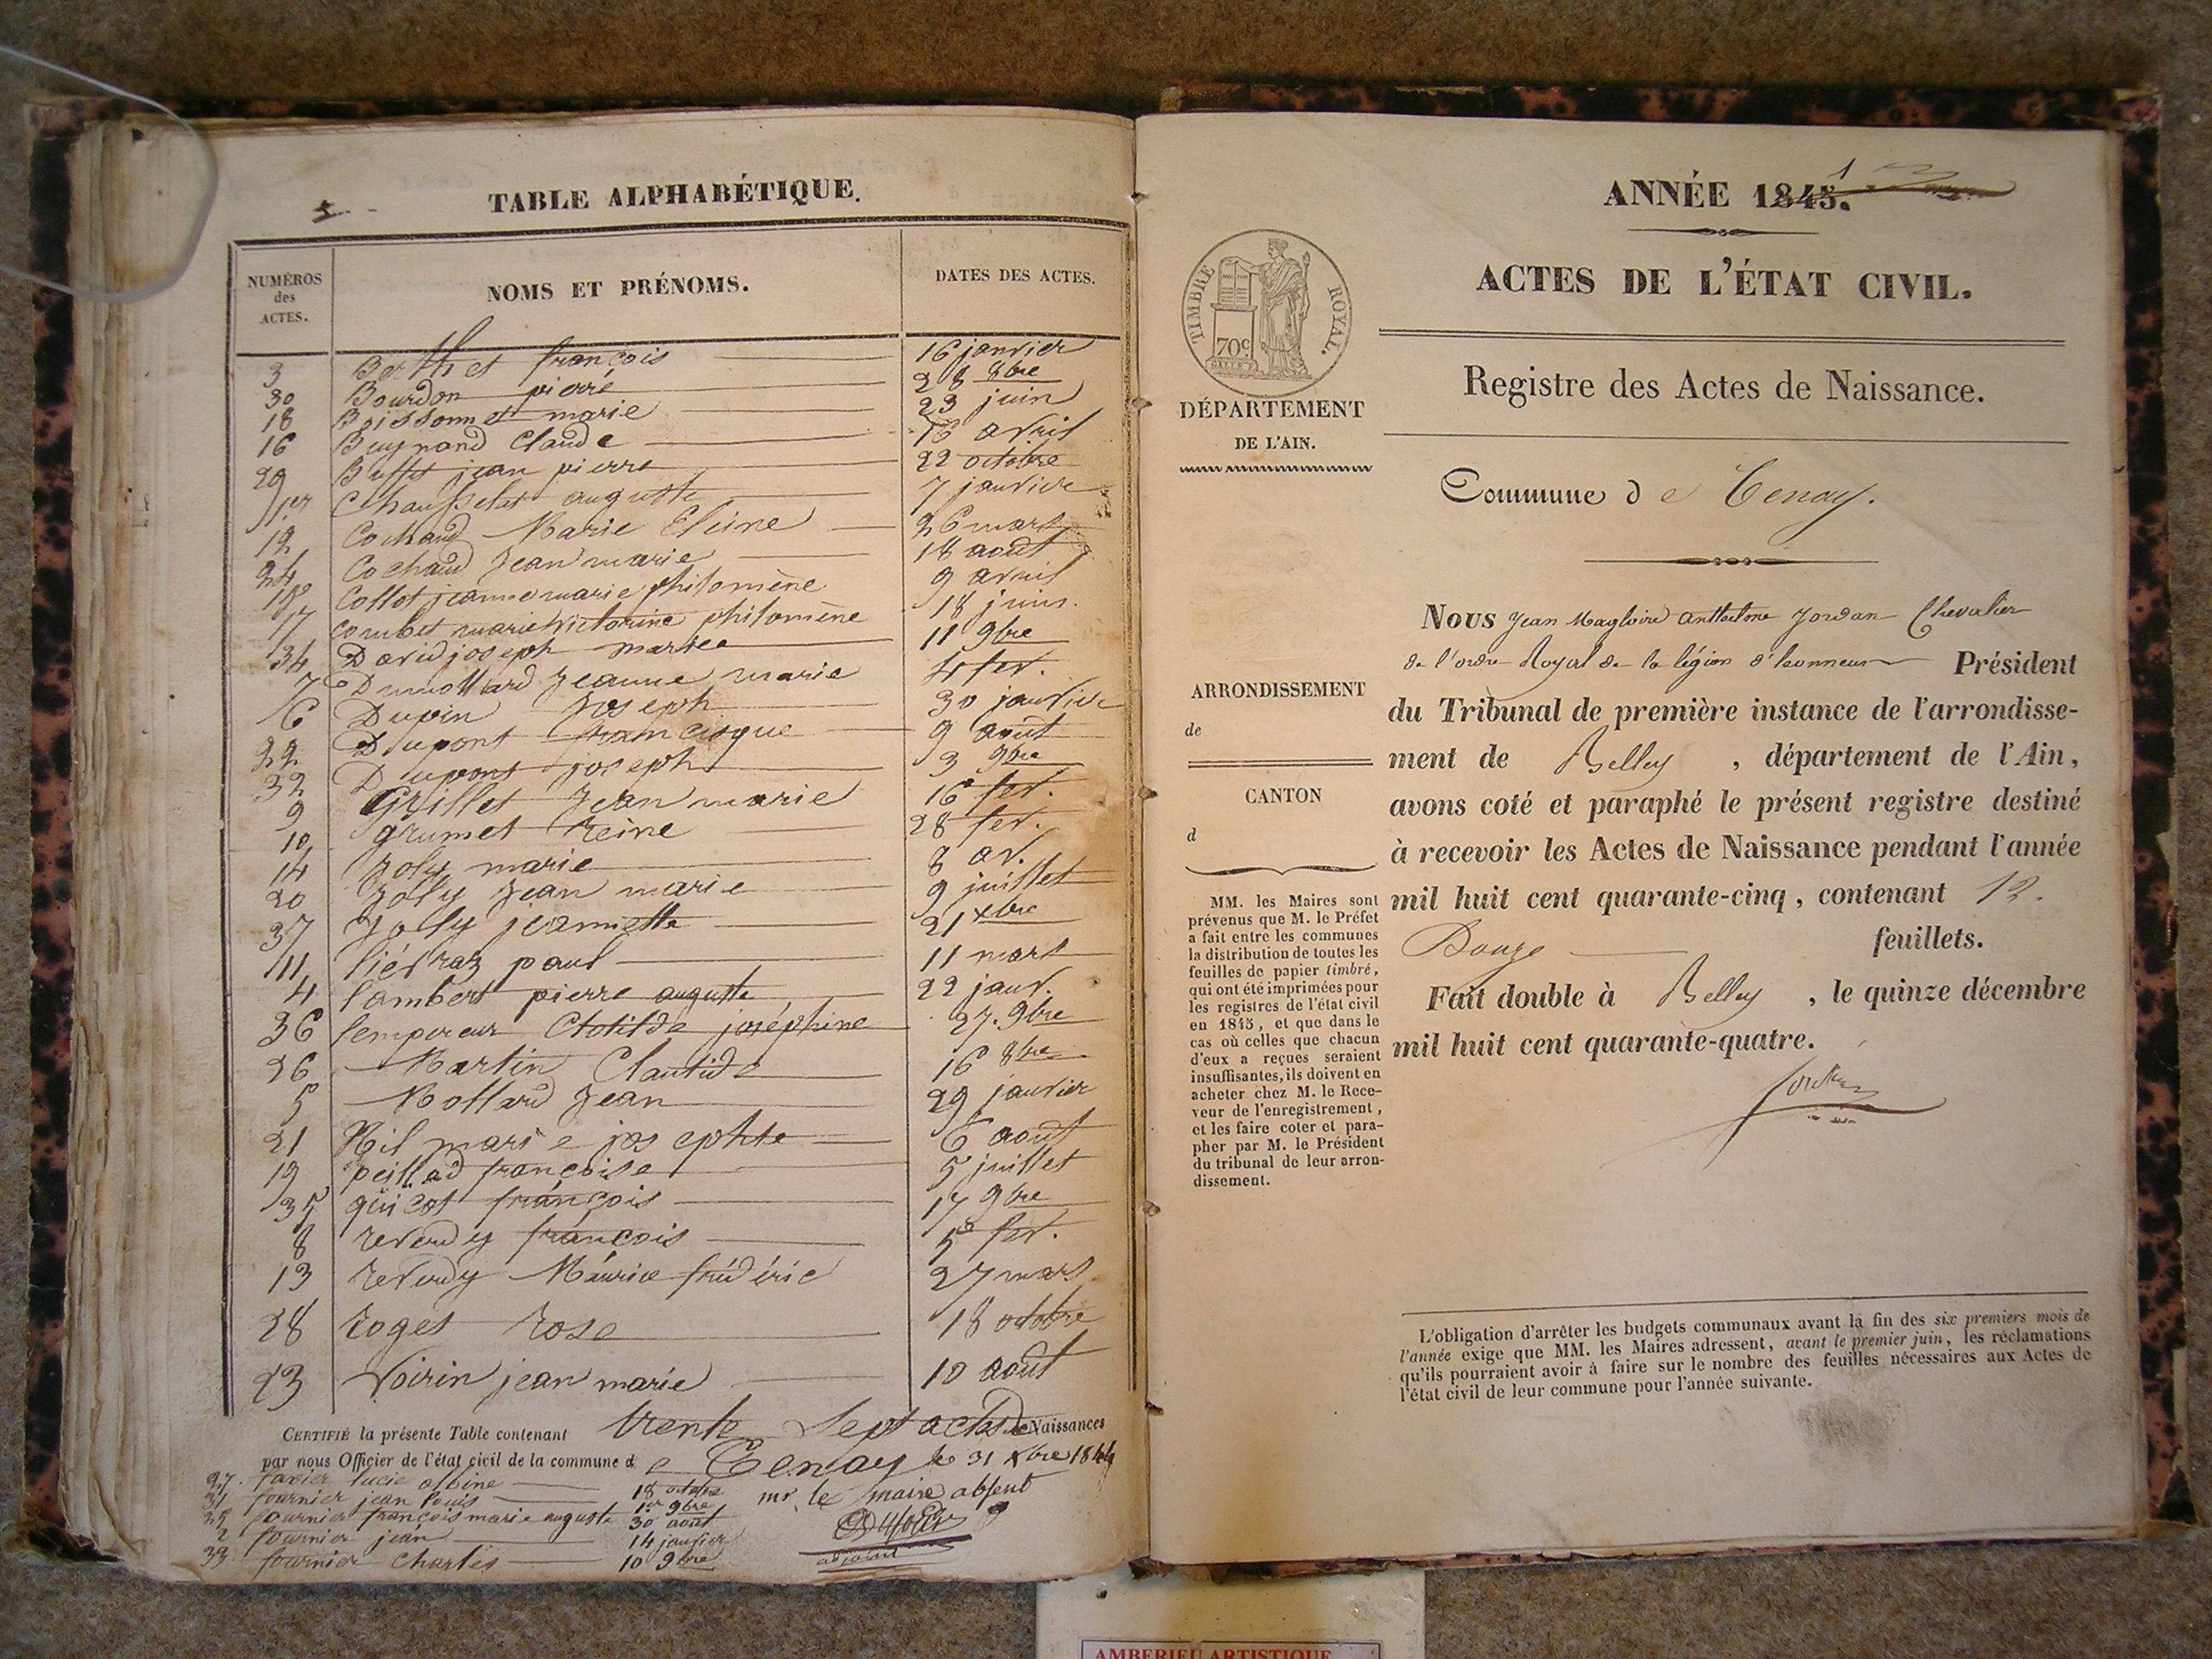 TABLE ALPHABÉTIQUE.
NUMÉROS
des
ACTES.
NOMS ET PRÉNOMS.
DATES DES ACTES.
3 Berthet françois 16 janvier
30 Bourdon pierre 28 8bre
18 Boissonnet marie 23 juin
16 Buynand Claude 16 avril
29 Buffet jean pierre 22 octobre
1er Chausselat auguste 7 janvier
12 Cochaud Marie 26 mars
24 Cochaud Jean marie 18 août
Collot jeanne marie philomène 9 avril
17 combet marie victorine philomène 18 juin.
34 David joseph 11 9bre
7 Dumollard Jeanne marie 4 fev.
6 Dupin Joseph 30 janvier
22 Dupont francisque 9 août
32 Dupont joseph 3 9bre
9 Grillet Jean marie 16 fev.
10 grumet reine 28 fev.
14 Joly marie 8 av.
20 Jolly Jean marie 9 juillet
37 Jolly jeannette 21 xbre
11 liévraz paul 11 mars
4 lambert pierre auguste 22 janv.
36 lempereur Clotilde joséphine 27. 9bre
26 Martin Claudide 16 8bre
5 Mollard Jean 29 janvier
21 Nil marie josephte 6 août
19 peillad françoise 5 juillet
35 quicot françois 17 9bre
8 reverdy françois 5 fev.
13 reverdy Maurice frédéric 27 mars
28 roget rose 18 octobre
23 Voirin jean marie 10 août
CERTIFIÉ la présente Table contenant trente sept actes de Naissances
par nous Officier de l'état civil de la commune de Tenay le 31 xbre 1844
27. favier lucie albine 18 octobre
31 fournier jean louis 1er 9bre
25 fournier françois marie auguste 30 août
2 fournier jean 14 janvier
33 fournier Charles 10 9bre
mr. le maire absent
adjoint
ANNÉE 1845.
1
ACTES DE L'ÉTAT CIVIL.
Registre des Actes de Naissance.
TIMBRE ROYAL.
70c.
DÉPARTEMENT
DE L'AIN.
Commune de Tenay.
ARRONDISSEMENT
de
CANTON
d
MM. les Maires sont
prévenus que M. le Préfet
a fait entre les communes
la distribution de toutes les
feuilles de papier timbré,
qui ont été imprimées pour
les registres de l'état civil
en 1845, et que dans le
cas où celles que chacun
d'eux a reçues seraient
insuffisantes, ils doivent en
acheter chez M. le Rece-
veur de l'enregistrement,
et les faire coter et para-
pher par M. le Président
du tribunal de leur arron-
dissement.
NOUS Jean Magloire Anthelme Jordan Chevalier
de l'ordre Royal de la légion d'honneur Président
du Tribunal de première instance de l'arrondisse-
ment de Belley, département de l'Ain,
avons coté et paraphé le présent registre destiné
à recevoir les Actes de Naissance pendant l'année
mil huit cent quarante-cinq, contenant 12.
Douze feuillets.
Fait double à Belley, le quinze décembre
mil huit cent quarante-quatre.
Jordan
L'obligation d'arrêter les budgets communaux avant la fin des six premiers mois de
l'année exige que MM. les Maires adressent, avant le premier juin, les réclamations
qu'ils pourraient avoir à faire sur le nombre des feuilles nécessaires aux Actes de
l'état civil de leur commune pour l'année suivante.
AMBERIEU ARTISTIQUE